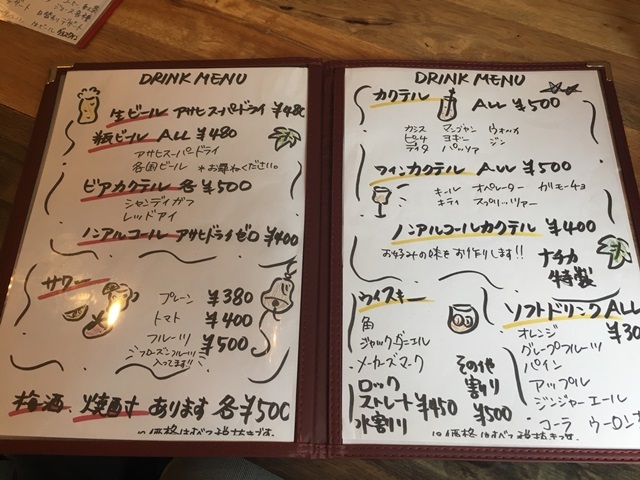 DRINK MENU
生ビール アサヒスーパードライ ¥480
瓶ビール ALL ¥480
アサヒスーパードライ
各国ビール *お尋ねください。
ビアカクテル 各¥500
シャンディガフ
レッドアイ
ノンアルコール アサヒドライゼロ ¥400
サワー
プレーン ¥380
トマト ¥400
フルーツ ¥500
フローズンフルーツ
入ってます!!
梅酒 焼酎 あります 各¥500
価格はすべて税抜きです。
DRINK MENU
カクテル ALL ¥500
カシス マンジャン ウォッカ
ピーチ ヨギー ジン
ライチ パッソア
ワインカクテル ALL ¥500
キール オペレーター カリモーチョ
キティ スプリッツァー
ノンアルコールカクテル ¥400
お好みの味をお作りします!! ナチカ
特製
ウイスキー
角
ジャックダニエル
メーカーズマーク
ロック
ストレート ¥450
水割り
その他
割り
¥500
ソフトドリンク ALL
¥30
オレンジ
グレープフルーツ
パイン
アップル
ジンジャーエール
コーラ ウーロン
価格はすべて税抜きです